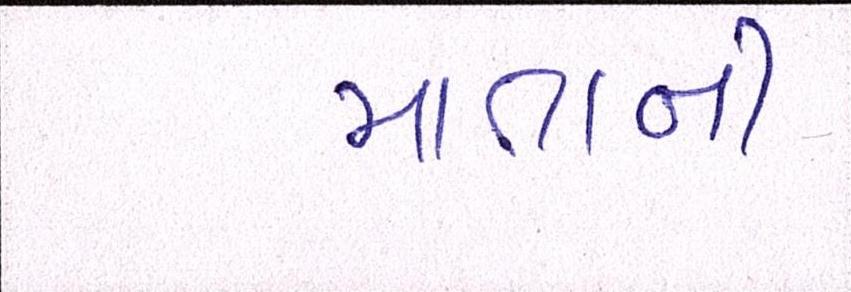 માતાની